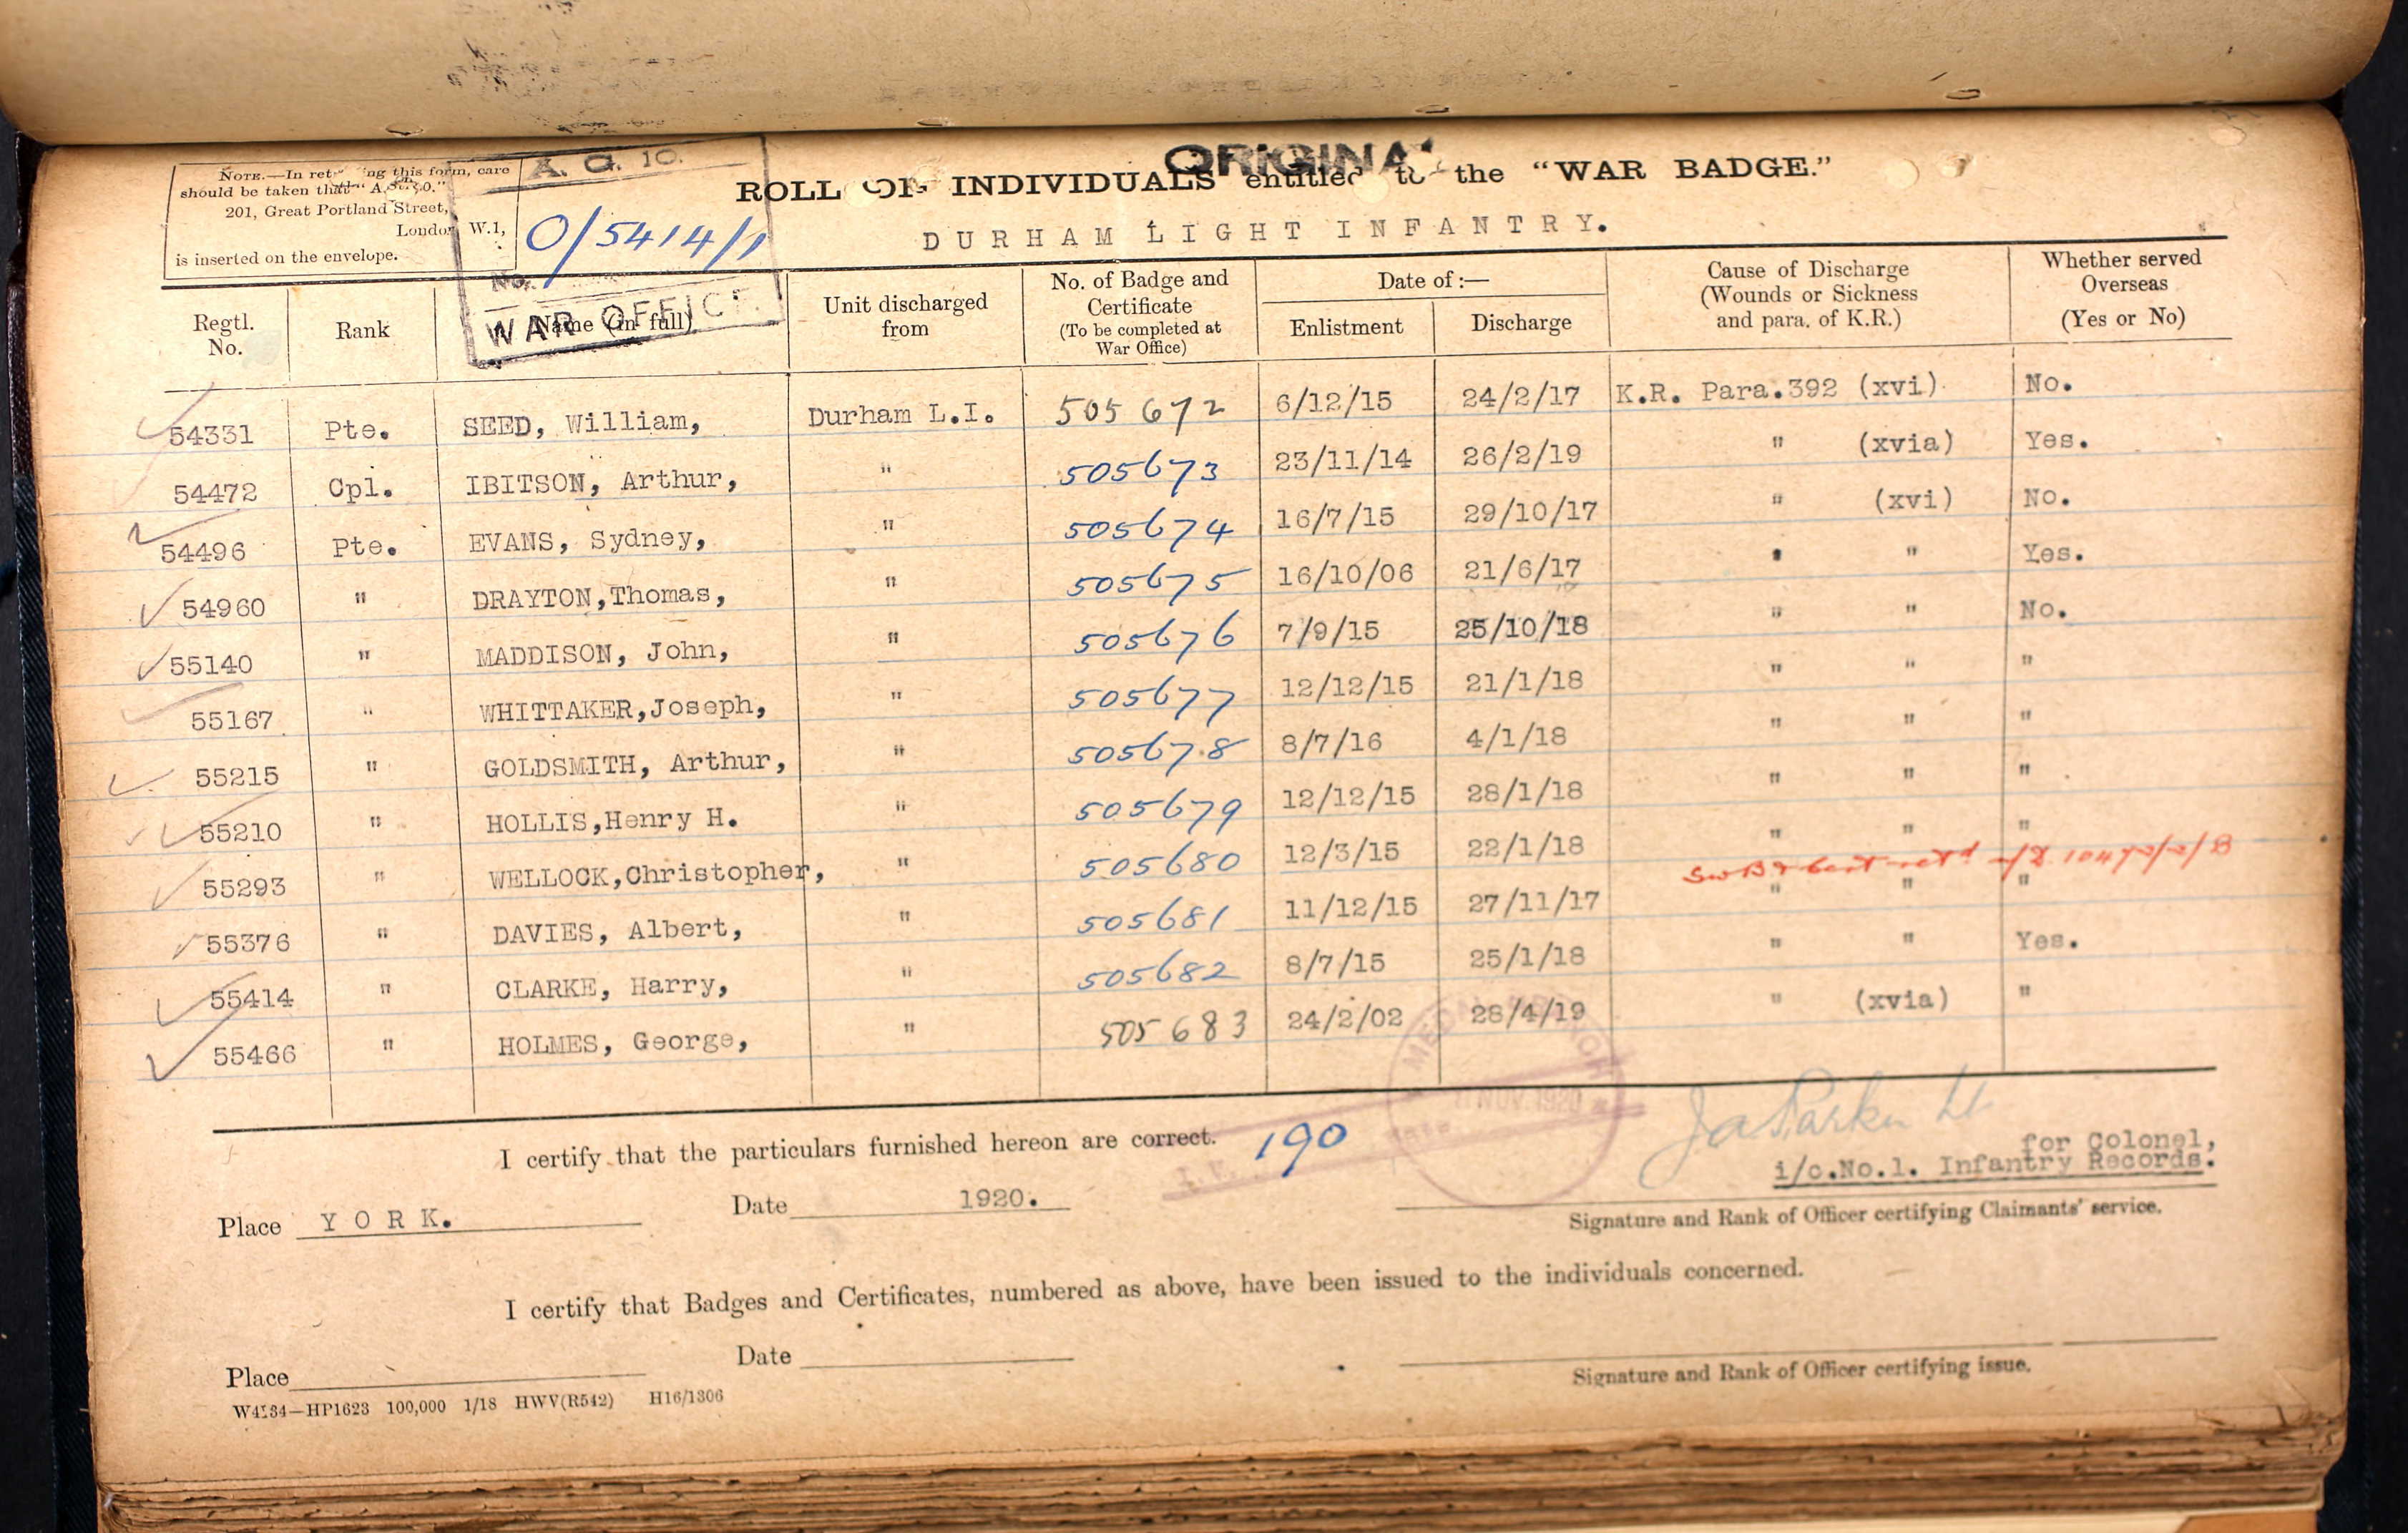 ORIGINA
A. G. 10.
NOTE.—In ret ing this form, care
should be taken that "A.
201, Great Portland Street,
London W.1,
is inserted on the envelope.
0/5414/1
No.
WAR OFFICE.
ROLL OF INDIVIDUALS entitled to the "WAR BADGE."
DURHAM LIGHT INFANTRY.
Regtl. No. Rank Name (in full) Unit discharged from No. of Badge and Certificate (To be completed at War Office) Date of :— Enlistment Discharge Cause of Discharge (Wounds or Sickness and para. of K.R.) Whether served Overseas (Yes or No)
54331 Pte. SEED, William, Durham L.I. 505672 6/12/15 24/2/17 K.R. Para.392 (xvi) No.
54472 Cpl. IBITSON, Arthur, " 505673 23/11/14 26/2/19 " (xvia) Yes.
54496 Pte. EVANS, Sydney, " 505674 16/7/15 29/10/17 " (xvi) No.
54960 " DRAYTON,Thomas, " 505675 16/10/06 21/6/17 " " Yes.
55140 " MADDISON, John, " 505676 7/9/15 25/10/18 " " No.
55167 " WHITTAKER,Joseph, " 505677 12/12/15 21/1/18 " " "
55215 " GOLDSMITH, Arthur, " 505678 8/7/16 4/1/18 " " "
55210 " HOLLIS,Henry H. " 505679 12/12/15 28/1/18 " " "
55293 " WELLOCK,Christopher, " 505680 12/3/15 22/1/18 " " "
55376 " DAVIES, Albert, " 505681 11/12/15 27/11/17 " " "
55414 " CLARKE, Harry, " 505682 8/7/15 25/1/18 " " Yes.
55466 " HOLMES, George, " 505683 24/2/02 28/4/19 " (xvia) "
NOV. 1920
I certify that the particulars furnished hereon are correct. 190
J A Parker Lt
for Colonel,
i/c.No.1. Infantry Records.
Place YORK. Date 1920.
Signature and Rank of Officer certifying Claimants' service.
I certify that Badges and Certificates, numbered as above, have been issued to the individuals concerned.
Place Date
Signature and Rank of Officer certifying issue.
W4134—HP1623 100,000 1/18 HWV(R542) H16/1306